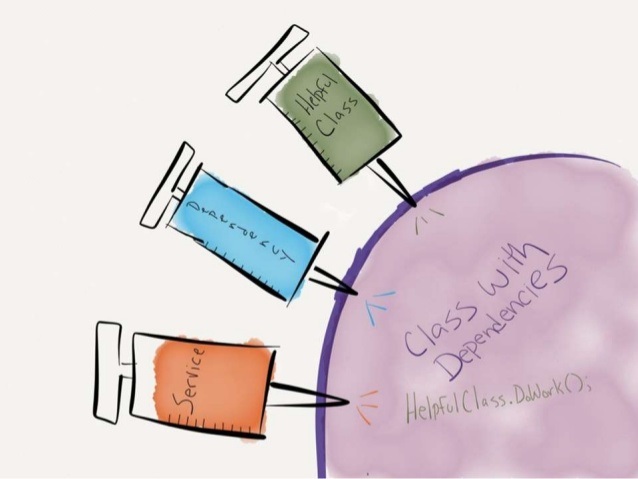 Helpful
Class
DEPENDENCY
Service
Class with
Dependencies
HelpfulClass.DoWork();